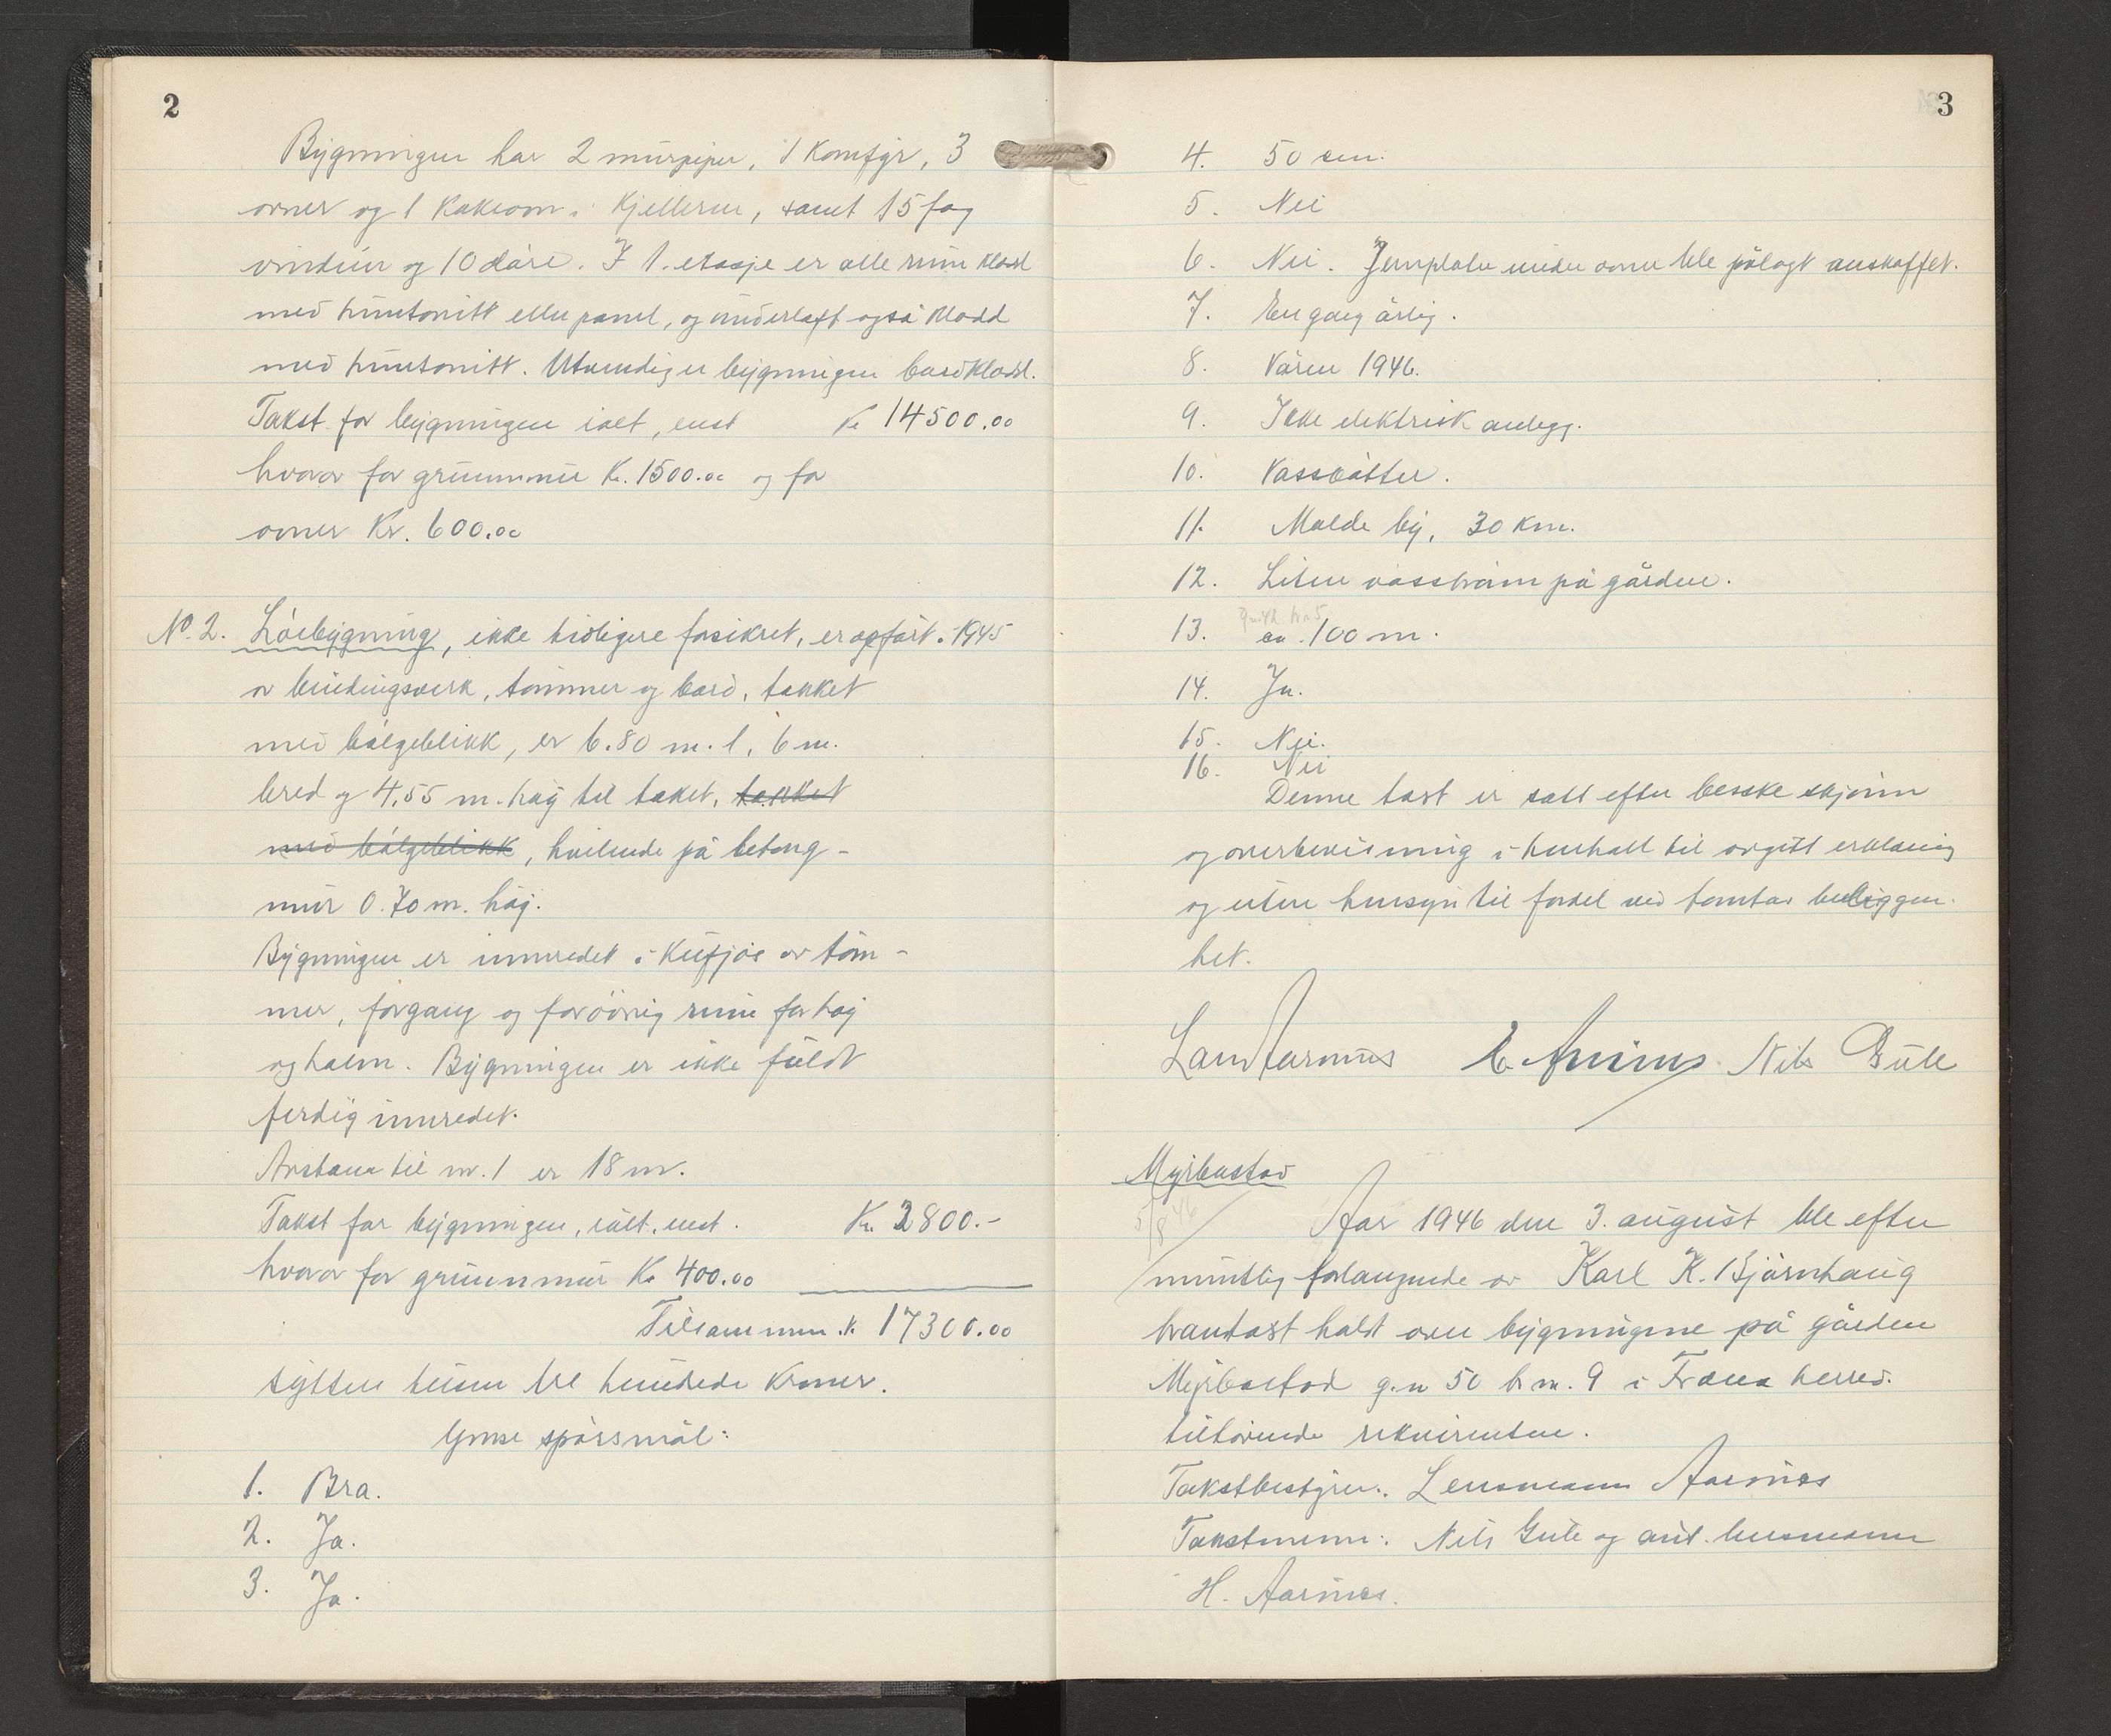 2
Bygningen har 2 murpiper, 1 komfyr, 3
ovner og 1 kakeovn i kjelleren, samt 15 fag
vinduer og 10 dører. I 1. etasje er alle rum kledd
med huntonitt eller panel, og underloft også kledd
med huntonitt. Utvendig er bygningen bordkledd.
Takst for bygningen ialt, enst Kr 14500.00
hvorav for grunnmur Kr. 1500.00 og for
ovner Kr. 600.00
No. 2. Løebygning, ikke tidligere forsikret, er opført 1945
av bindingsverk, tømmer og bord, tekket
med bølgeblikk, er 6.80 m. l, 6 m.
bred og 4,55 m. høy til taket, tekket
med bølgeblikk, hvilende på betong-
mur 0.70 m. høy.
Bygningen er innredet i kufjøs av tøm-
mer, forgang og forøvrig rum for høy
og halm. Bygningen er ikke fuldt
ferdig innredet.
Avstand til nr. 1 er 18 m.
Takst for bygningen, ialt, enst. Kr. 2800.-
hvorav for grunnmur Kr 400.00
Tilsammen Kr 17300.00
sytten tusen tre hundrede kroner.
Ymse spørsmål:
1. Bra.
2. Ja.
3. Ja.
3
4. 50 cm.
5. Nei
6. Nei. Jernplater under ovner ble pålagt anskaffet.
7. En gang årlig.
8. Våren 1946.
9. Ikke elektrisk anlegg.
10. Vassbøtter.
11. Molde by, 30 km.
12. Liten vasstrøm på gården.
13. ca. 100 m.
14. Ja.
15. Nei.
16. Nei
Denne takst er satt efter beste skjønn
og overbevisning i henhold til avgitt erklæring
og uten hensyn til fordel ved tomtas beliggen-
het.
Nils Gule
Myrbostad
5/8 46
År 1946 den 3. august ble efter
muntlig forlangende av Karl K. Bjørnhaug
branntakst holdt over bygningene på gården
Myrbostad g.n 50 br.n. 9 i Fræna herred.
tilhørende rekvirenten.
Takstbestyrer: Lensmann Aarnes
Takstmenn: Nils Gule og ast. lensmann
H. Aarnes.